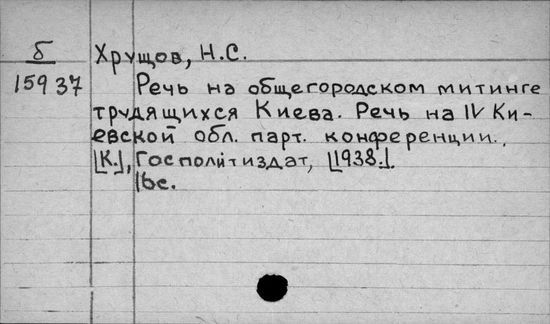 б Хрущов, Н.С.
15937 Речь на общегородском митинге
трудящихся Киева. Речь на IV Ки-
евской обл. парт. конференции.,
[К.], Госполитиздат, [1938.].
16с.